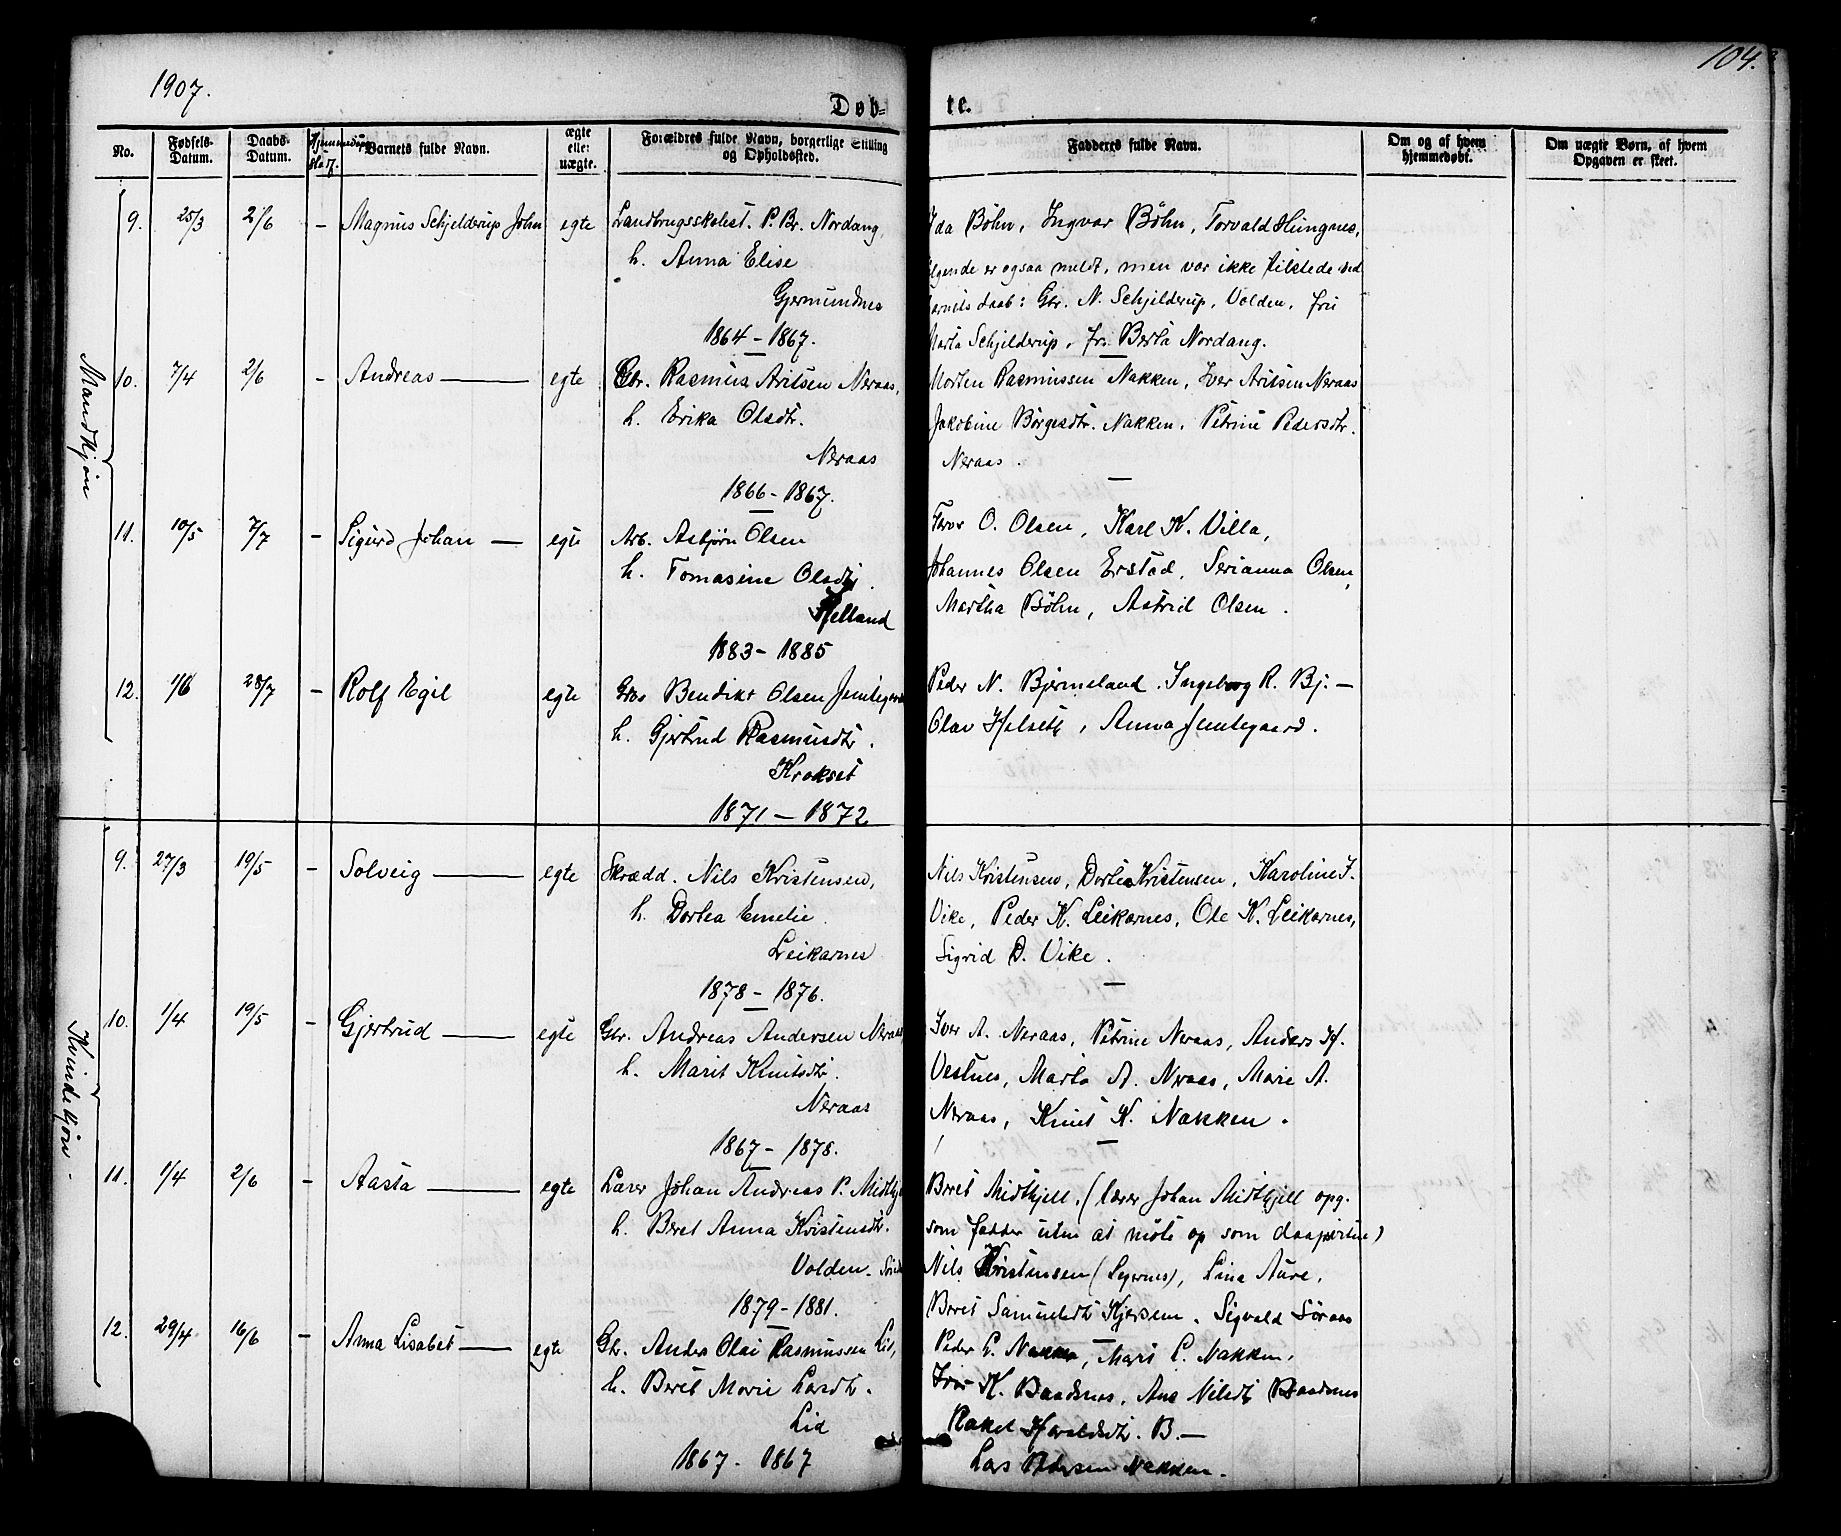 1907.
104.
Døb-
te.
No.
Fødsels-Datum.
Daabs-Datum.
Barnets fulde Navn.
ægte eller uægte.
Forældres fulde Navn, borgerlige Stilling og Opholdssted.
Fadderes fulde Navn.
Om og af hvem hjemmedøbt.
Om uægte Børn, af hvem Opgaven er skeet.
Mandkjøn
9. 25/3 2/6 - Magnus Schjelderup John egte Landbrugsskolest. P. Br. Nordang,
h. Anna Elise
Gjermundnes
1864 - 1867.
Ida Bøhn, Ingvar Bøhn, Torvald Hungnes,
er ogsaa meldt, men var ikke tilstede ved
daab: Gbr. N. Schjelderup, Volden, fru
Marta Schjelderup, frk. Berta Nordang.
10. 7/4 2/6 - Andreas — egte Gbr. Rasmus Arilsen Neraas,
h. Erika Olsdtr.
Neraas
1866 - 1867.
Morten Rasmussen Nakken, Iver Arilsen Neraas
Jakobine Børgesdtr. Nakken, Petrine Pedersdtr.
Neraas.
11. 10/5 7/7 - Sigurd Johan — egte Arb. Asbjørn Olsen
h. Tomasine Olsdtr.
Helland
1883 - 1885
O. Olsen, Karl K. Villa,
Johannes Olsen Erstad, Serianna Olsen,
Martha Bøhn, Astrid Olsen.
12. 1/6 28/7 - Rolf Egil egte Gbr Bendikt Olsen
h. Gjertrud Rasmusdtr.
Krokset
1871 - 1872
Peder N. Bjermeland. Ingeborg R. Bj. —
Olav Helset, Anna Jemtegaard.
Kvindekjøn.
9. 27/3 19/5 - Solveig — egte Skrædd. Nils Kristensen,
h. Dortea Emelie.
Leikarnes
1878 - 1876.
Nils Kristensen, Dortea Kristensen, Karoline I.
Vike, Peder K. Leikarnes, Ole K. Leikarnes,
Sigrid D. Vike.
10. 1/4 19/5 - Gjertrud — egte Gbr. Andreas Andersen Neraas
h. Marit Knutsdtr.
Neraas
1867 - 1878.
Iver A. Neraas, Petrine Neraas, Anders K.
Vestnes, Marta A. Neraas, Marie A.
Neraas, Knut K. Nakken.
11. 1/4 2/6 - Aasta — egte Lærer Johan Andreas P.
h. Beret Anna Kristensdtr.
Volden.
1879 - 1881.
Beret Midtkjell, (lærer Johan Midtkjell opg.
som fadder uten at møte op som
Nils Kristensen (Legernes), Lina Aure,
Beret Samuelsdtr Kjersem, Sigvald Søraas
12. 29/4 16/6 - Anna Lisabet — egte Gbr. Anders Olai Rasmussen Lid,
h. Beret Marie Larsdtr.
Lid
1867 - 1867
Peder L. Nakken, Marit L. Nakken,
Iver K. Baadsnes, Ane Nilsdtr Baadsnes
Rakel Haraldsdtr. B. —
Lars Pedersen Nakken.